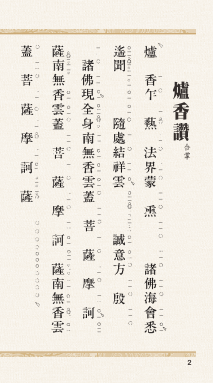 爐香讚 合掌
爐香乍爇 法界蒙熏 諸佛海會悉
遙聞 隨處結祥雲 誠意方殷
諸佛現全身南無香雲蓋菩薩摩訶
薩南無香雲蓋菩薩摩訶薩南無香雲
蓋菩薩摩訶薩
2